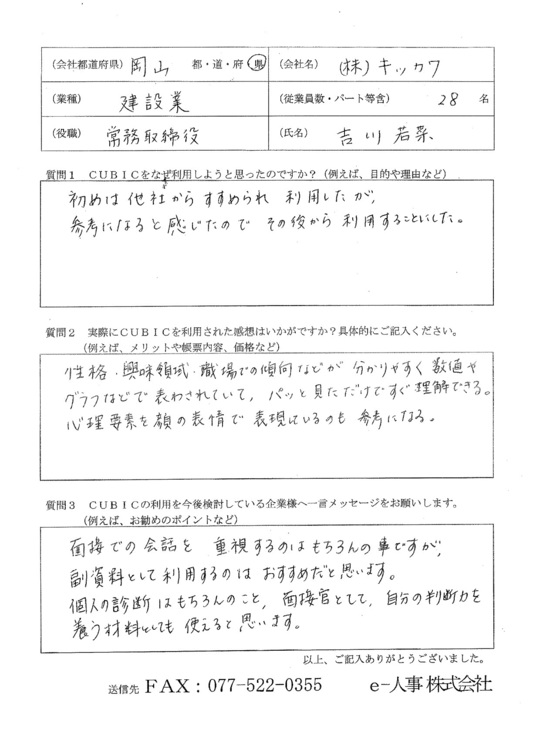 (会社都道府県) 岡山 都・道・府・県
(会社名) (株)キックワ
(業種) 建設業
(従業員数・パート等含) 28 名
(役職) 常務取締役
(氏名) 吉川 若菜
質問1 CUBICをなぜ利用しようと思ったのですか?(例えば、目的や理由など)
初めは他社からすすめられ 利用したが、
参考になると感じたので その後から利用することにした。
質問2 実際にCUBICを利用された感想はいかがですか?具体的にご記入ください。
(例えば、メリットや帳票内容、価格など)
性格・興味領域・職場での傾向などが 分かりやすく数値や
グラフなどで表わされていて、パッと見ただけですぐ理解できる。
心理要素を顔の表情で表現しているのも 参考になる。
質問3 CUBICの利用を今後検討している企業様へ一言メッセージをお願いします。
(例えば、お勧めのポイントなど)
面接での会話を 重視するのはもちろんの事ですが、
副資料として利用するのは おすすめだと思います。
個人の診断はもちろんのこと、面接官として、自分の判断力を
養う材料としても 使えると思います。
以上、ご記入ありがとうございました。
送信先 FAX:077-522-0355 e-人事 株式会社